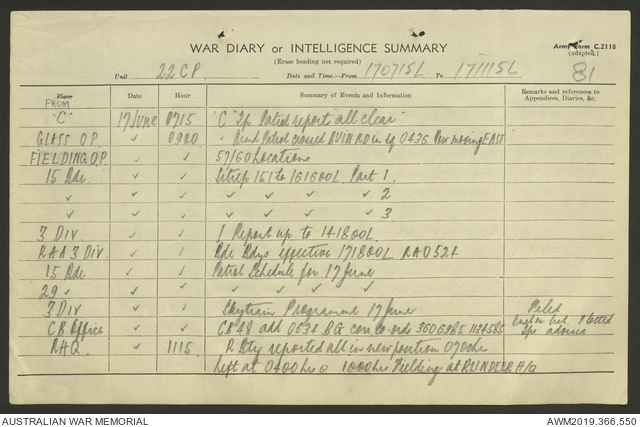 WAR DIARY or INTELLIGENCE SUMMARY
Army Form C.2118
(adapted.)
(Erase heading not required)
81
Unit 22 CP. Date and Time.—From 170715L To 171115L
Place Date Hour Summary of Events and Information Remarks and references to Appendices, Diaries, &c.
FROM
"C" 17 June 0715 "C" Tp Patrol report "all clear"
GLASS OP ✓ 0900 Patrol crossed RD in sq 0436 Now moving EAST
FIELDING OP. ✓ ✓ 57/60 Locations
15 Bde ✓ ✓ Sitrep 151 to 161600L Part 1.
✓ ✓ ✓ ✓ ✓ ✓ ✓ 2
✓ ✓ ✓ ✓ ✓ ✓ ✓ 3
3 DIV. ✓ ✓ I Report up to 141800L
RAA 3 DIV ✓ ✓ Bde Bdys effective 171800L RAO 524
15 Bde ✓ ✓ Patrol Schedule for 17 June
29 ✓ ✓ ✓ ✓ ✓ ✓ ✓
3 DIV ✓ ✓ Skytrain Programme 17 June Filed
CB Office ✓ ✓ CB 48 add 0634 BG 360 Plotted
Tps advised
RAQ. ✓ 1115 R Bty reported all in new position 0700hr
Left at 0400hr 1000hr Fielding at H/Q
AUSTRALIAN WAR MEMORIAL
AWM2019.366.550